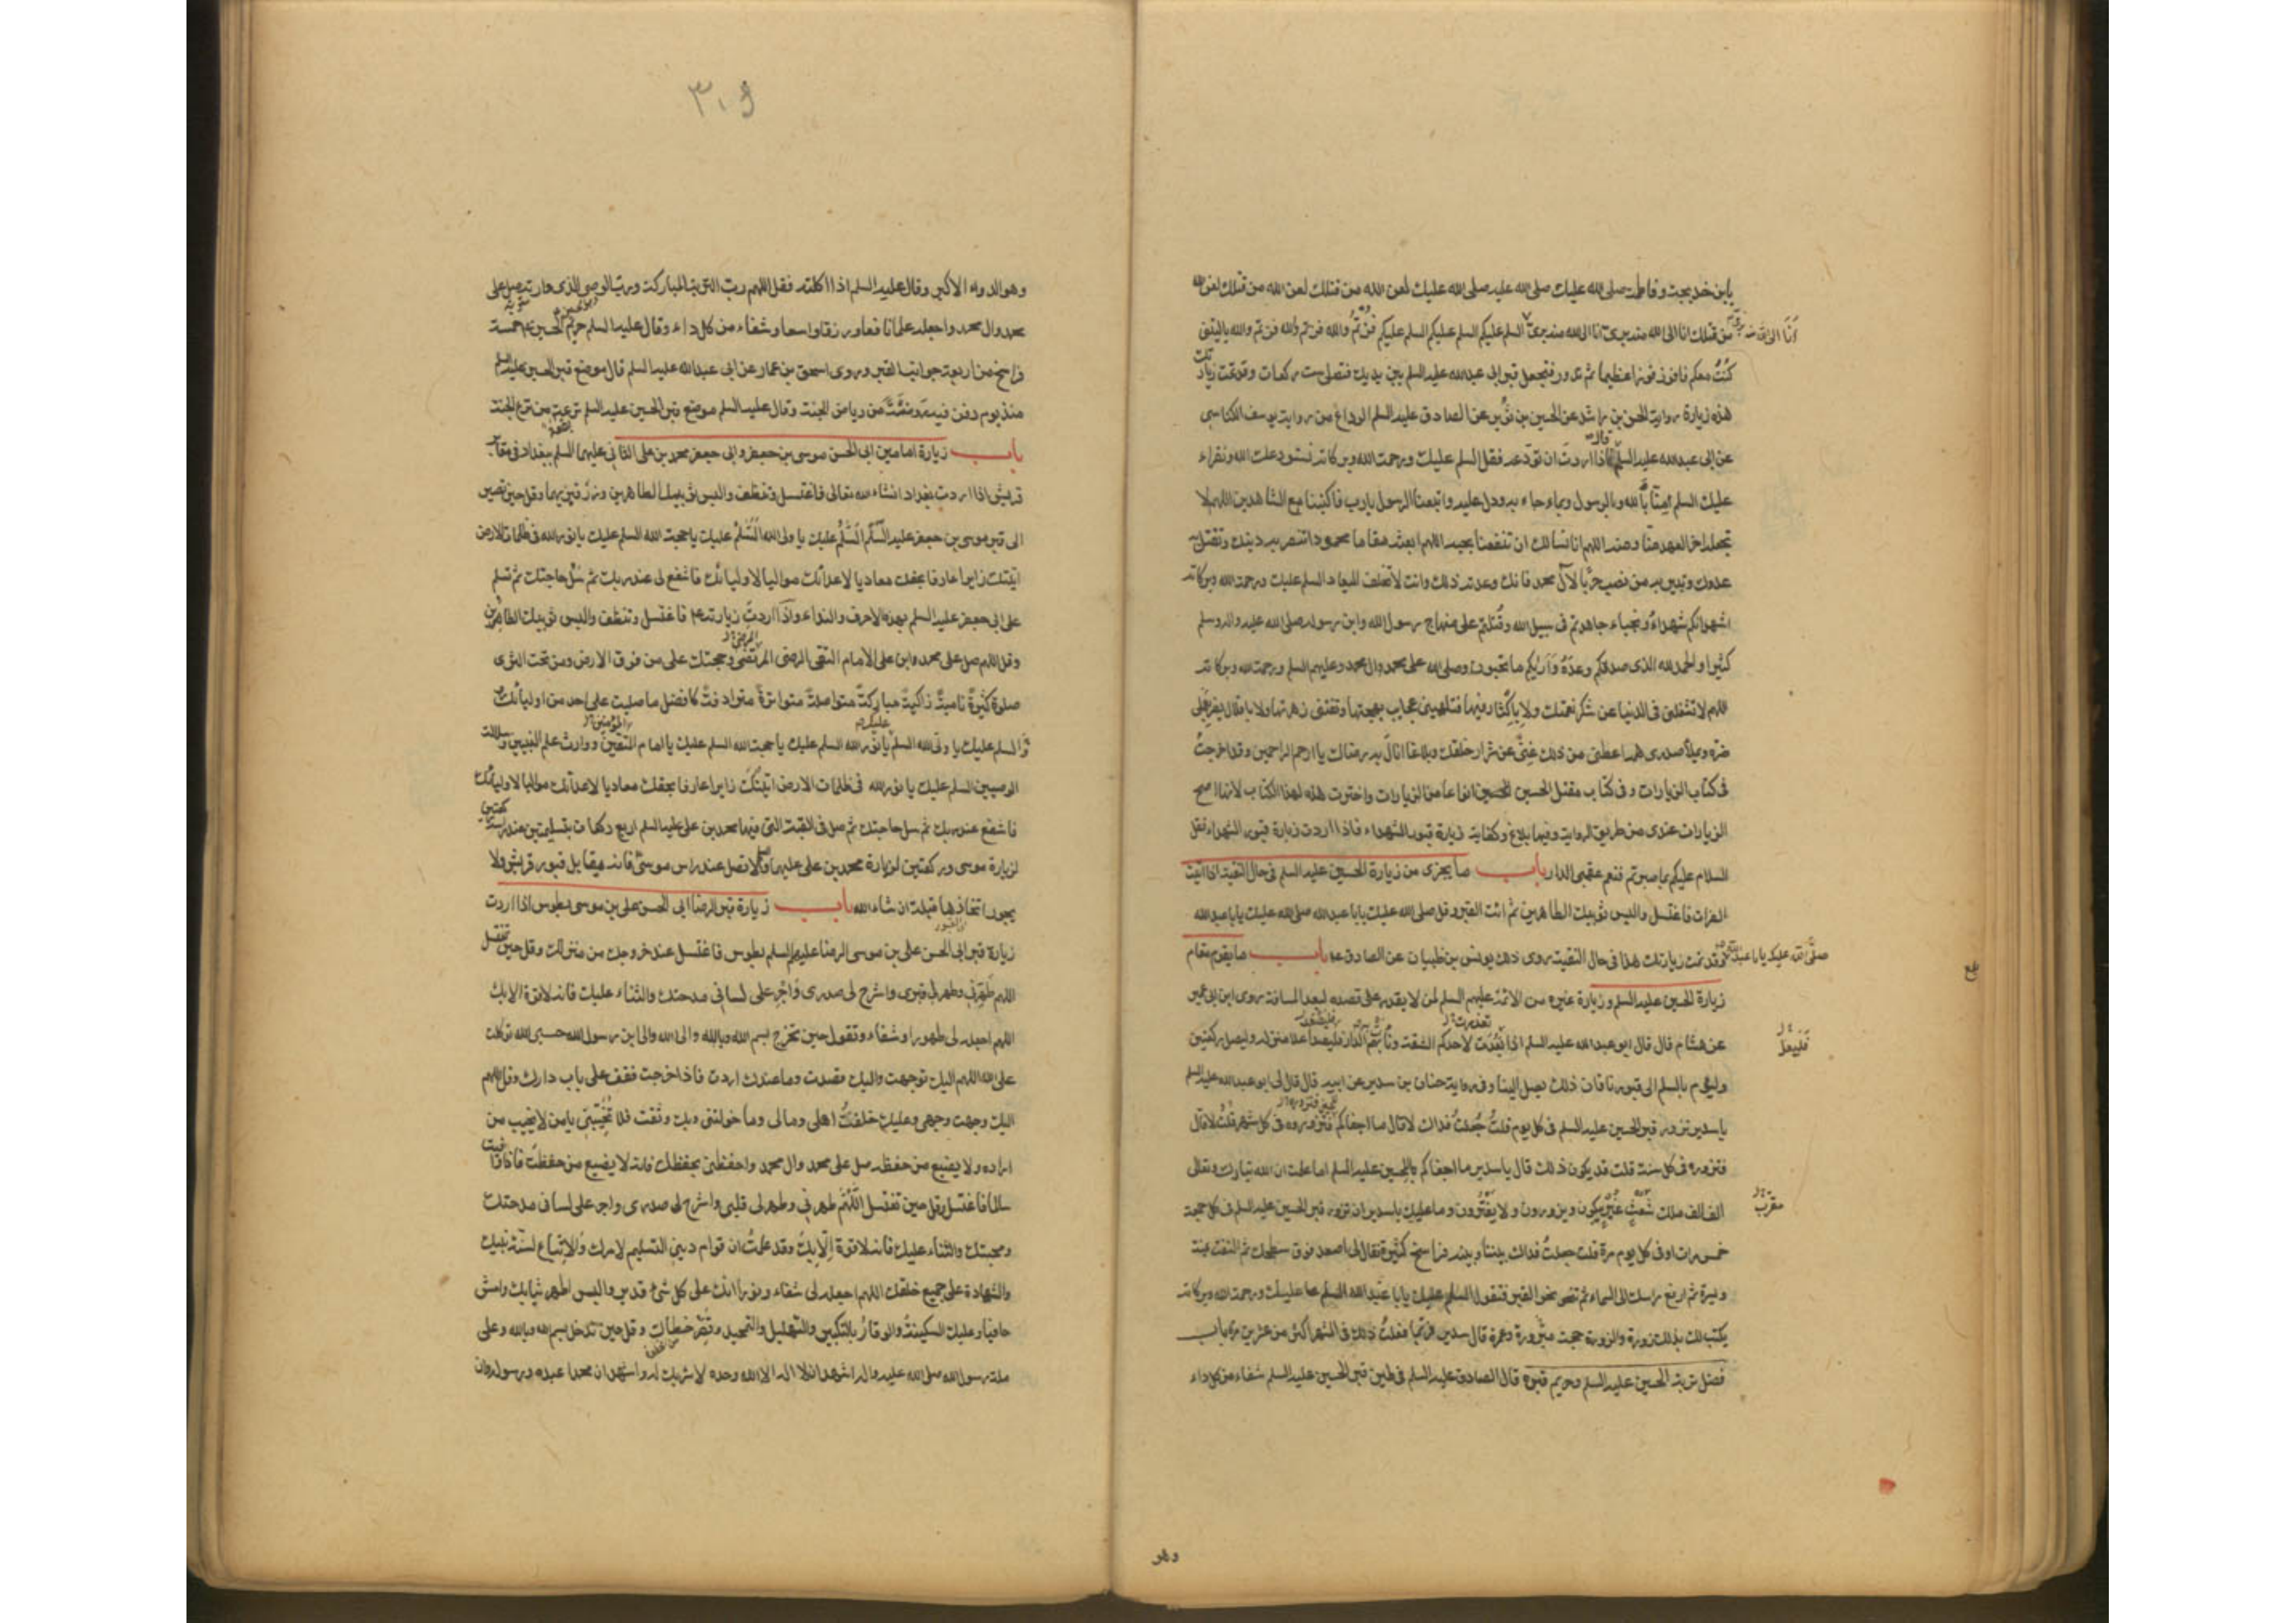 يابن خديجة وفاطمة صلى الله عليك صلى الله عليك لعن الله من قتلك لعن الله من قتلك لعن الله
من قتلك انا الى الله منهم برئ انا الى الله منهم برئ السلم عليكم السلم عليكم السلم عليكم فزتم والله فزتم والله فزتم والله ياليتنى
كنت معكم فافوز فوزا عظيما ثم تدور فتجعل قبر ابى عبدالله عليه السلم بين يديك فتصلى ست ركعات وقد تمت زيارتك
هذه زيارة رواية الحسن بن راشد عن الحسين بن ثوير عن الصادق عليه السلم الوداع من رواية يوسف الكناسى
عن ابى عبدالله عليه السلم قال اذا اردت ان تودعه فقل السلم عليك ورحمة الله وبركاته نستودعك الله ونقراء
عليك السلم امنا بالله وبالرسول وبما جاء به ودل عليه واتبعنا الرسول يا رب فاكتبنا مع الشاهدين اللهم لا
تجعله اخر العهد منا ومنه اللهم انا نسالك ان تنفعنا بحبه اللهم ابعثه مقاما محمودا تنصر به دينك وتقتل به
عدوك وتبير به من نصب حربا لآل محمد فانك وعدته ذلك وانت لا تخلف الميعاد السلم عليك ورحمة الله وبركاته
اشهد انكم شهداء ونجباء جاهدتم فى سبيل الله وقتلتم على منهاج رسول الله وابن رسوله صلى الله عليه واله وسلم
كثيرا والحمد لله الذى صدقكم وعده وأريكم ما تحبون وصلى الله على محمد وال محمد وعليهم السلم ورحمة الله وبركاته
اللهم لا تشغلنى فى الدنيا عن شكر نعمتك ولا باكثار فيها فتلهينى عجايب بهجتها وتفتننى زهرتها ولا باقلال يضر بعملى
ضره ويملأ صدرى همه اعطنى من ذلك غنى عن شرار خلقك وبلاغا انال به رضاك يا ارحم الراحمين وقد اخرجت
فى كتاب الزيارات وفى كتاب مقتل الحسين انواعا من الزيارات واخترت هذه لهذا الكتاب لانها اصح
الزيارات عندى من طريق الرواية وفيها بلاغ وكفاية زيارة قبور الشهداء فاذا اردت زيارة قبور الشهداء فقل
السلام عليكم بما صبرتم فنعم عقبى الدار باب ما يجزى من زيارة الحسين عليه السلم فى حال التقية اذا اتيت
الفرات فاغتسل والبس ثوبيك الطاهرين ثم ائت القبر وقل صلى الله عليك يابا عبدالله صلى الله عليك يابا عبدالله
صلى الله عليك يابا عبدالله وقد تمت زيارتك هذا فى حال التقية روى ذلك يونس بن ظبيان عن الصادق ع باب ما يقوم مقام
زيارة الحسين عليه السلم وزيارة غيره من الائمة عليهم السلم لمن لا يقدر على قصده لبعد المسافة روى ابن ابى عمير
عن هشام قال قال ابو عبدالله عليه السلم اذا بعدت لاحدكم الشقة ونأت به الدار فليصعد اعلا منزله وليصل ركعتين
وليؤم بالسلم الى قبورنا فان ذلك يصل الينا وفى رواية حنان بن سدير عن ابيه قال قال لى ابو عبدالله عليه السلم
يا سدير تزور قبر الحسين عليه السلم فى كل يوم قلت جعلت فداك لا قال ما اجفاكم فتزوروه فى كل شهر قلت لا قال
فتزوره فى كل سنة قلت قد يكون ذلك قال يا سدير ما اجفاكم بالحسين عليه السلم اما علمت ان الله تبارك وتعالى
الف الف ملك شعث غبر يبكون ويزورون ولا يفترون وما عليك يا سدير ان تزور قبر الحسين عليه السلم فى كل جمعة
خمس مرات او فى كل يوم مرة قلت جعلت فداك بيننا وبينه فراسخ كثيرة فقال لى اصعد فوق سطحك ثم التفت يمنة
ويسرة ثم ارفع راسك الى السماء ثم تنحو نحو القبر فتقول السلم عليك يابا عبدالله السلم عليك ورحمة الله وبركاته
يكتب لك بذلك زورة والزورة حجة مبرورة وعمرة قال سدير فربما فعلت ذلك فى الشهر اكثر من عشرين مرة باب
فضل تربة الحسين عليه السلم وحريم قبره قال الصادق عليه السلم فى طين قبر الحسين عليه السلم شفاء من كل داء
وهو
فليعل
مقرب
بلغ
٣٠٩
وهو الدواء الاكبر وقال عليه السلم اذا اكلته فقل اللهم رب التربة المباركة ورب الوصى الذى وارته صل على
محمد وال محمد واجعله علما نافعا ورزقا واسعا وشفاء من كل داء وقال عليه السلم حريم الحسين ع خمسة
فراسخ من اربعة جوانب القبر وروى اسحق بن عمار عن ابى عبدالله عليه السلم قال موضع قبر الحسين عليه السلم
منذ يوم دفن فيه روضة من رياض الجنة وقال عليه السلم موضع قبر الحسين عليه السلم ترعة من ترع الجنة
باب زيارة امامين ابى الحسن موسى بن جعفر وابى جعفر محمد بن على الثانى عليهما السلم ببغداد فى مقابر
قريش اذا اردت بغداد انشاء الله تعالى فاغتسل وتنظف والبس ثوبيك الطاهرين وزر قبريهما وقل حين تصير
الى قبر موسى بن جعفر عليه السلم السلم عليك يا ولى الله السلم عليك يا حجة الله السلم عليك يا نور الله فى ظلمات الارض
اتيتك زايرا عارفا بحقك معاديا لاعدائك مواليا لاوليائك فاشفع لى عند ربك ثم سل حاجتك ثم تسلم
على ابى جعفر عليه السلم بهذه الاحرف والنداء واذا اردت زيارته ع فاغتسل وتنظف والبس ثوبيك الطاهرين
وقل اللهم صل على محمد وابن على الامام التقى الرضى المرتضى وحجتك على من فوق الارض ومن تحت الثرى
صلوة كثيرة نامية زاكية مباركة متواصلة متواترة مترادفة كافضل ما صليت على احد من اوليائك
والسلم عليك يا ولى الله السلم عليك يا نور الله السلم عليك يا حجة الله السلم عليك يا امام المتقين ووارث علم النبيين وسلالة
الوصيين السلم عليك يا نور الله فى ظلمات الارض اتيتك زايرا عارفا بحقك معاديا لاعدائك مواليا لاوليائك
فاشفع عند ربك ثم سل حاجتك ثم صل فى القبة التى فيها محمد بن على عليه السلم اربع ركعات بتسليمتين عند راسه ركعتين
لزيارة موسى وركعتين لزيارة محمد بن على عليهما ولا تصل عند راس موسى فانه يقابل قبور قريش ولا
يجوز اتخاذها قبلة ان شاء الله باب زيارة قبر الرضا ابى الحسن على بن موسى بطوس اذا اردت
زيارة قبر ابى الحسن على بن موسى الرضا عليهم السلم بطوس فاغتسل عند خروجك من منزلك وقل حين تغتسل
اللهم طهرنى وطهر لى قلبى واشرح لى صدرى واجر على لسانى مدحتك والثناء عليك فانه لا قوة الا بك
اللهم اجعله لى طهورا وشفاء وتقول حين تخرج بسم الله وبالله والى الله والى ابن رسول الله حسبى الله توكلت
على الله اللهم اليك توجهت واليك قصدت وما عندك اردت فاذا خرجت فقف على باب دارك وقل اللهم
اليك وجهت وجهى وعليك خلفت اهلى ومالى وما خولتنى وبك وثقت فلا تخيبنى يا من لا يخيب من
اراده ولا يضيع من حفظه صل على محمد وال محمد واحفظنى بحفظك فانه لا يضيع من حفظت فاذا وافيت
سالما فاغتسل وقل حين تغتسل اللهم طهرنى وطهر لى قلبى واشرح لى صدرى واجر على لسانى مدحتك
ومحبتك والثناء عليك فانه لا قوة الا بك وقد علمت ان قوام دينى التسليم لامرك والاتباع لسنة نبيك
والشهادة على جميع خلقك اللهم اجعله لى شفاء ونورا انك على كل شئ قدير والبس اطهر ثيابك وامش
حافيا وعليك السكينة والوقار بالتكبير والتهليل والتمجيد وقصر خطاك وقل حين تدخل بسم الله وبالله وعلى
ملة رسول الله صلى الله عليه واله اشهد ان لا اله الا الله وحده لا شريك له واشهد ان محمدا عبده ورسوله وان